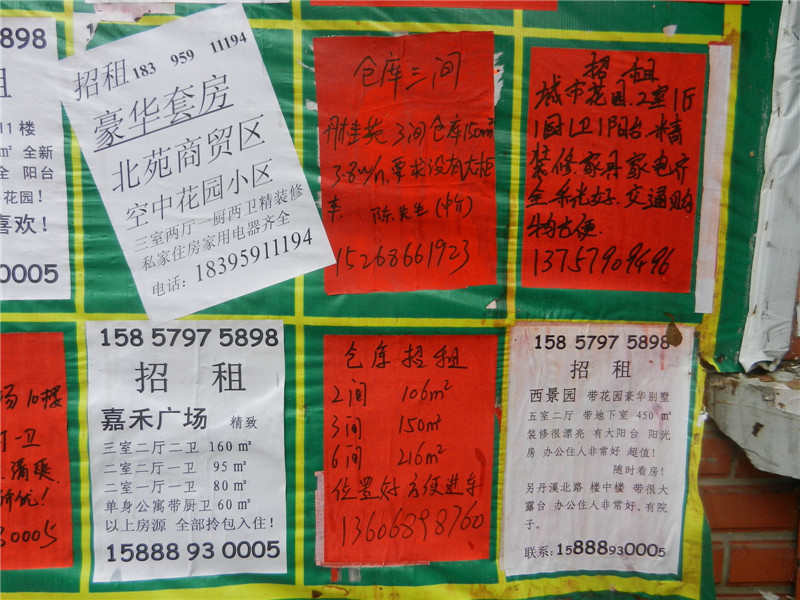 898
租
11 楼
㎡ 全新
全 阳台
花园！
喜欢！
0005
招租 183 959 11194
豪华套房
北苑商贸区
空中花园小区
三室两厅一厨两卫精装修
私家住房家用电器齐全
电话：18395911194
仓库三间
3间仓库150m²
要求没有大柜
车. 陈先生(中介)
15268661923
招租
城市花园.2室1厅
1厨1卫1阳台.精
装修.家具家电齐
全.采光好.交通购
物方便.
13757909496
10楼
一卫
.清爽
价优！
30005
158 5797 5898
招 租
嘉禾广场 精致
三室二厅二卫 160 ㎡
二室二厅一卫 95 ㎡
二室一厅一卫 80 ㎡
单身公寓带厨卫 60 ㎡
以上房源 全部拎包入住！
15888 93 0005
仓库招租
2间 106m²
3间 150m²
6间 216m²
位置好方便进车
13606898760
158 5797 5898
招 租
西景园 带花园豪华别墅
五室二厅 带地下室 450 ㎡
装修很漂亮 有大阳台 阳光
房 办公住人非常好 超值！
随时看房！
另丹溪北路 楼中楼 带很大
露台 办公住人非常好。有院
子。
联系：15888930005